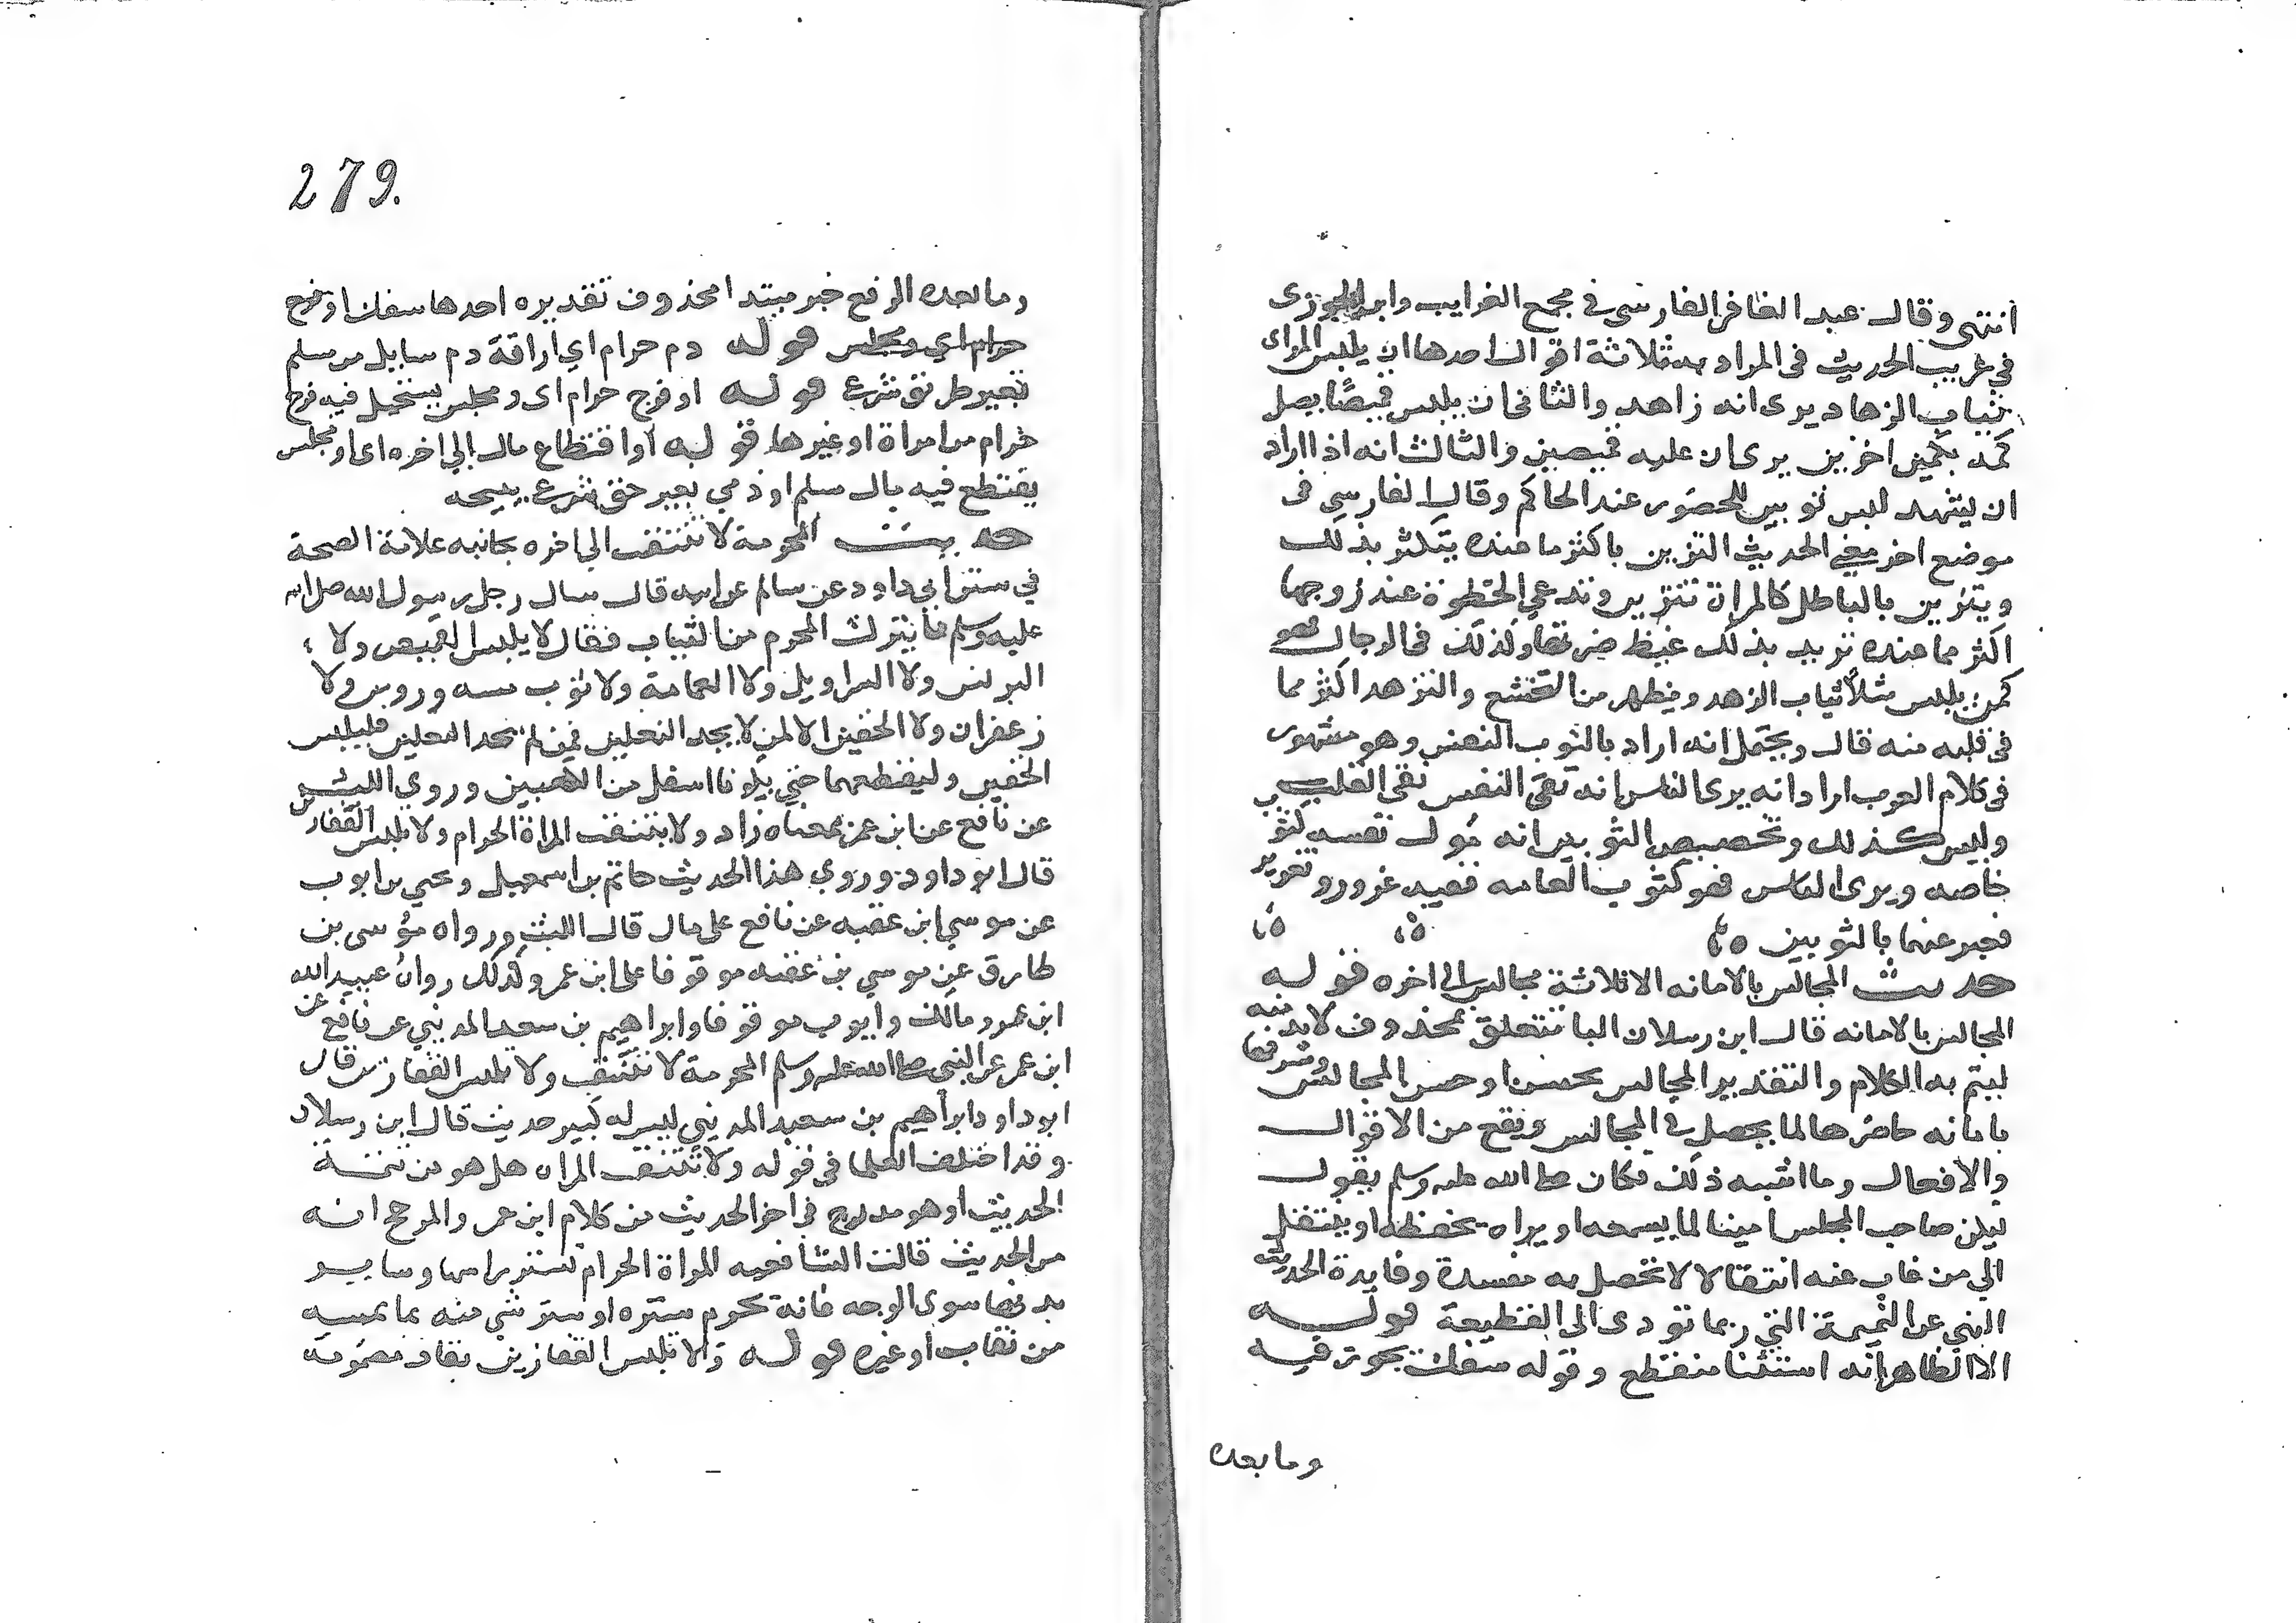 انتهى وقال عبد الغافر الفارسي في مجمع الغرايب وابن الجوزى
في غريب الحديث في المراد به ثلاثة اقوال احدها ان يلبس المراى
ثياب الزهاد يرى انه زاهد والثاني ان يلبس قميصًا يصل
كمه بكمين اخرين يرى ان عليه قميصين والثالث انه اذا اراد
ان يشهد لبس ثوبين للحضور عند الحاكم وقال الفارسي في
موضع اخر معني الحديث التزين باكثر ما عنده يتكثر بذلك
ويتزين بالباطل كالمراة تتزين وتدعي الحظوة عند زوجها
اكثر مما عنده تريد بذلك غيظ ضرتها وكذلك في الرجال فهو
كمن يلبس مثلاً ثياب الزهد ويظهر من التخشع والتزهد اكثر مما
في قلبه منه قال ويحتمل انه اراد بالثوب النفس وهو مشهور
في كلام العرب اراد انه يرى الناس انه نقي النفس نقي القلب
وليس كذلك وتخصيص الثوبين انه نفسه كثوب
خاصه ويرى الناس فهو كثوب العامه ففيه غرور وتغرير
فعبر عنهما بالثوبين
حديث المجالس بالامانه الا ثلاثة مجالس الى اخره قوله
المجالس بالامانه قال ابن رسلان البا تتعلق بمحذوف لابد منه
ليتم به الكلام والتقدير المجالس تحسن او حسن المجالس وشرفها
بامانه حاضرها لما يحصل في المجالس ويقع من الاقوال
والافعال وما اشبه ذلك فكان صلى الله عليه وسلم يقول
ليكن صاحب المجلس امينا لما يسمعه او يراه يحفظه او ينتقل
الي من غاب عنه انتقالا لا تحصل به مفسدة وفايدة الحديث
النهي عن النميمة التي ربما تؤدى الى القطيعة قوله
الا الظاهر انه استثنا منقطع وقوله سفك يجوز فيه
وما بعده
279.
وما بعده الرفع خبر مبتدا محذوف تقديره احدها سفك او فرج
حرام اي ومجلس قوله دم حرام اي اراقة دم سايل من مسلم
بغير طريق شرع قوله او فرج حرام اى ومجلس يستحيل فيه فرج
حرام من امراة او غيرها قوله او اقتطاع مال الي اخره اى او مجلس
يقتطع فيه مال مسلم او ذمي بغير حق شرع يبيحه
حديث المحرمة لا تنتقب الي اخره بجانبه علامة الصحة
في سنن ابي داود عن سالم عن ابيه قال سال رجل رسول الله صلى الله
عليه وسلم ما يترك المحرم من الثياب فقال لا يلبس القميص ولا
البرنس ولا السراويل ولا العمامة ولا ثوب مسه ورس ولا
زعفران ولا الخفين الا لمن لا يجد النعلين فمن لم يجد النعلين فليلبس
الخفين وليقطعهما حتي يكونا اسفل من الكعبين وروي الليث
عن نافع عن ابن عمر بمعناه زاد ولا تنتقب المراة الحرام ولا تلبس القفازين
قال ابو داود وروي هذا الحديث حاتم بن اسمعيل ويحيي بن ايوب
عن موسي ابن عقبه عن نافع على ما قال الليث ورواه موسى بن
طارق عن موسي بن عقبه موقوفا على ابن عمر وكذلك رواه عبيد الله
ابن عمر ومالك وايوب موقوفا وابراهيم بن سعيد المديني عن نافع عن
ابن عمر عن النبي صلى الله عليه وسلم المحرمة لا تنتقب ولا تلبس القفازين قال
ابو داود ابراهيم بن سعيد المديني ليس له كبير حديث قال ابن رسلان
وقد اختلف العلما في قوله ولا تنتقب المراه هل هو من تتمة
الحديث او هو مدرج في اخر الحديث من كلام ابن عمر والمرجح انه
من الحديث قالت الشافعيه المراة الحرام تستر راسها وساير
بدنها سوى الوجه فانه يحرم ستره او ستر شي منه بما يمسه
من نقاب او غيره قوله ولا تلبس القفازين بقاف مضمومة